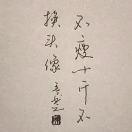 不瘦十斤不
换头像